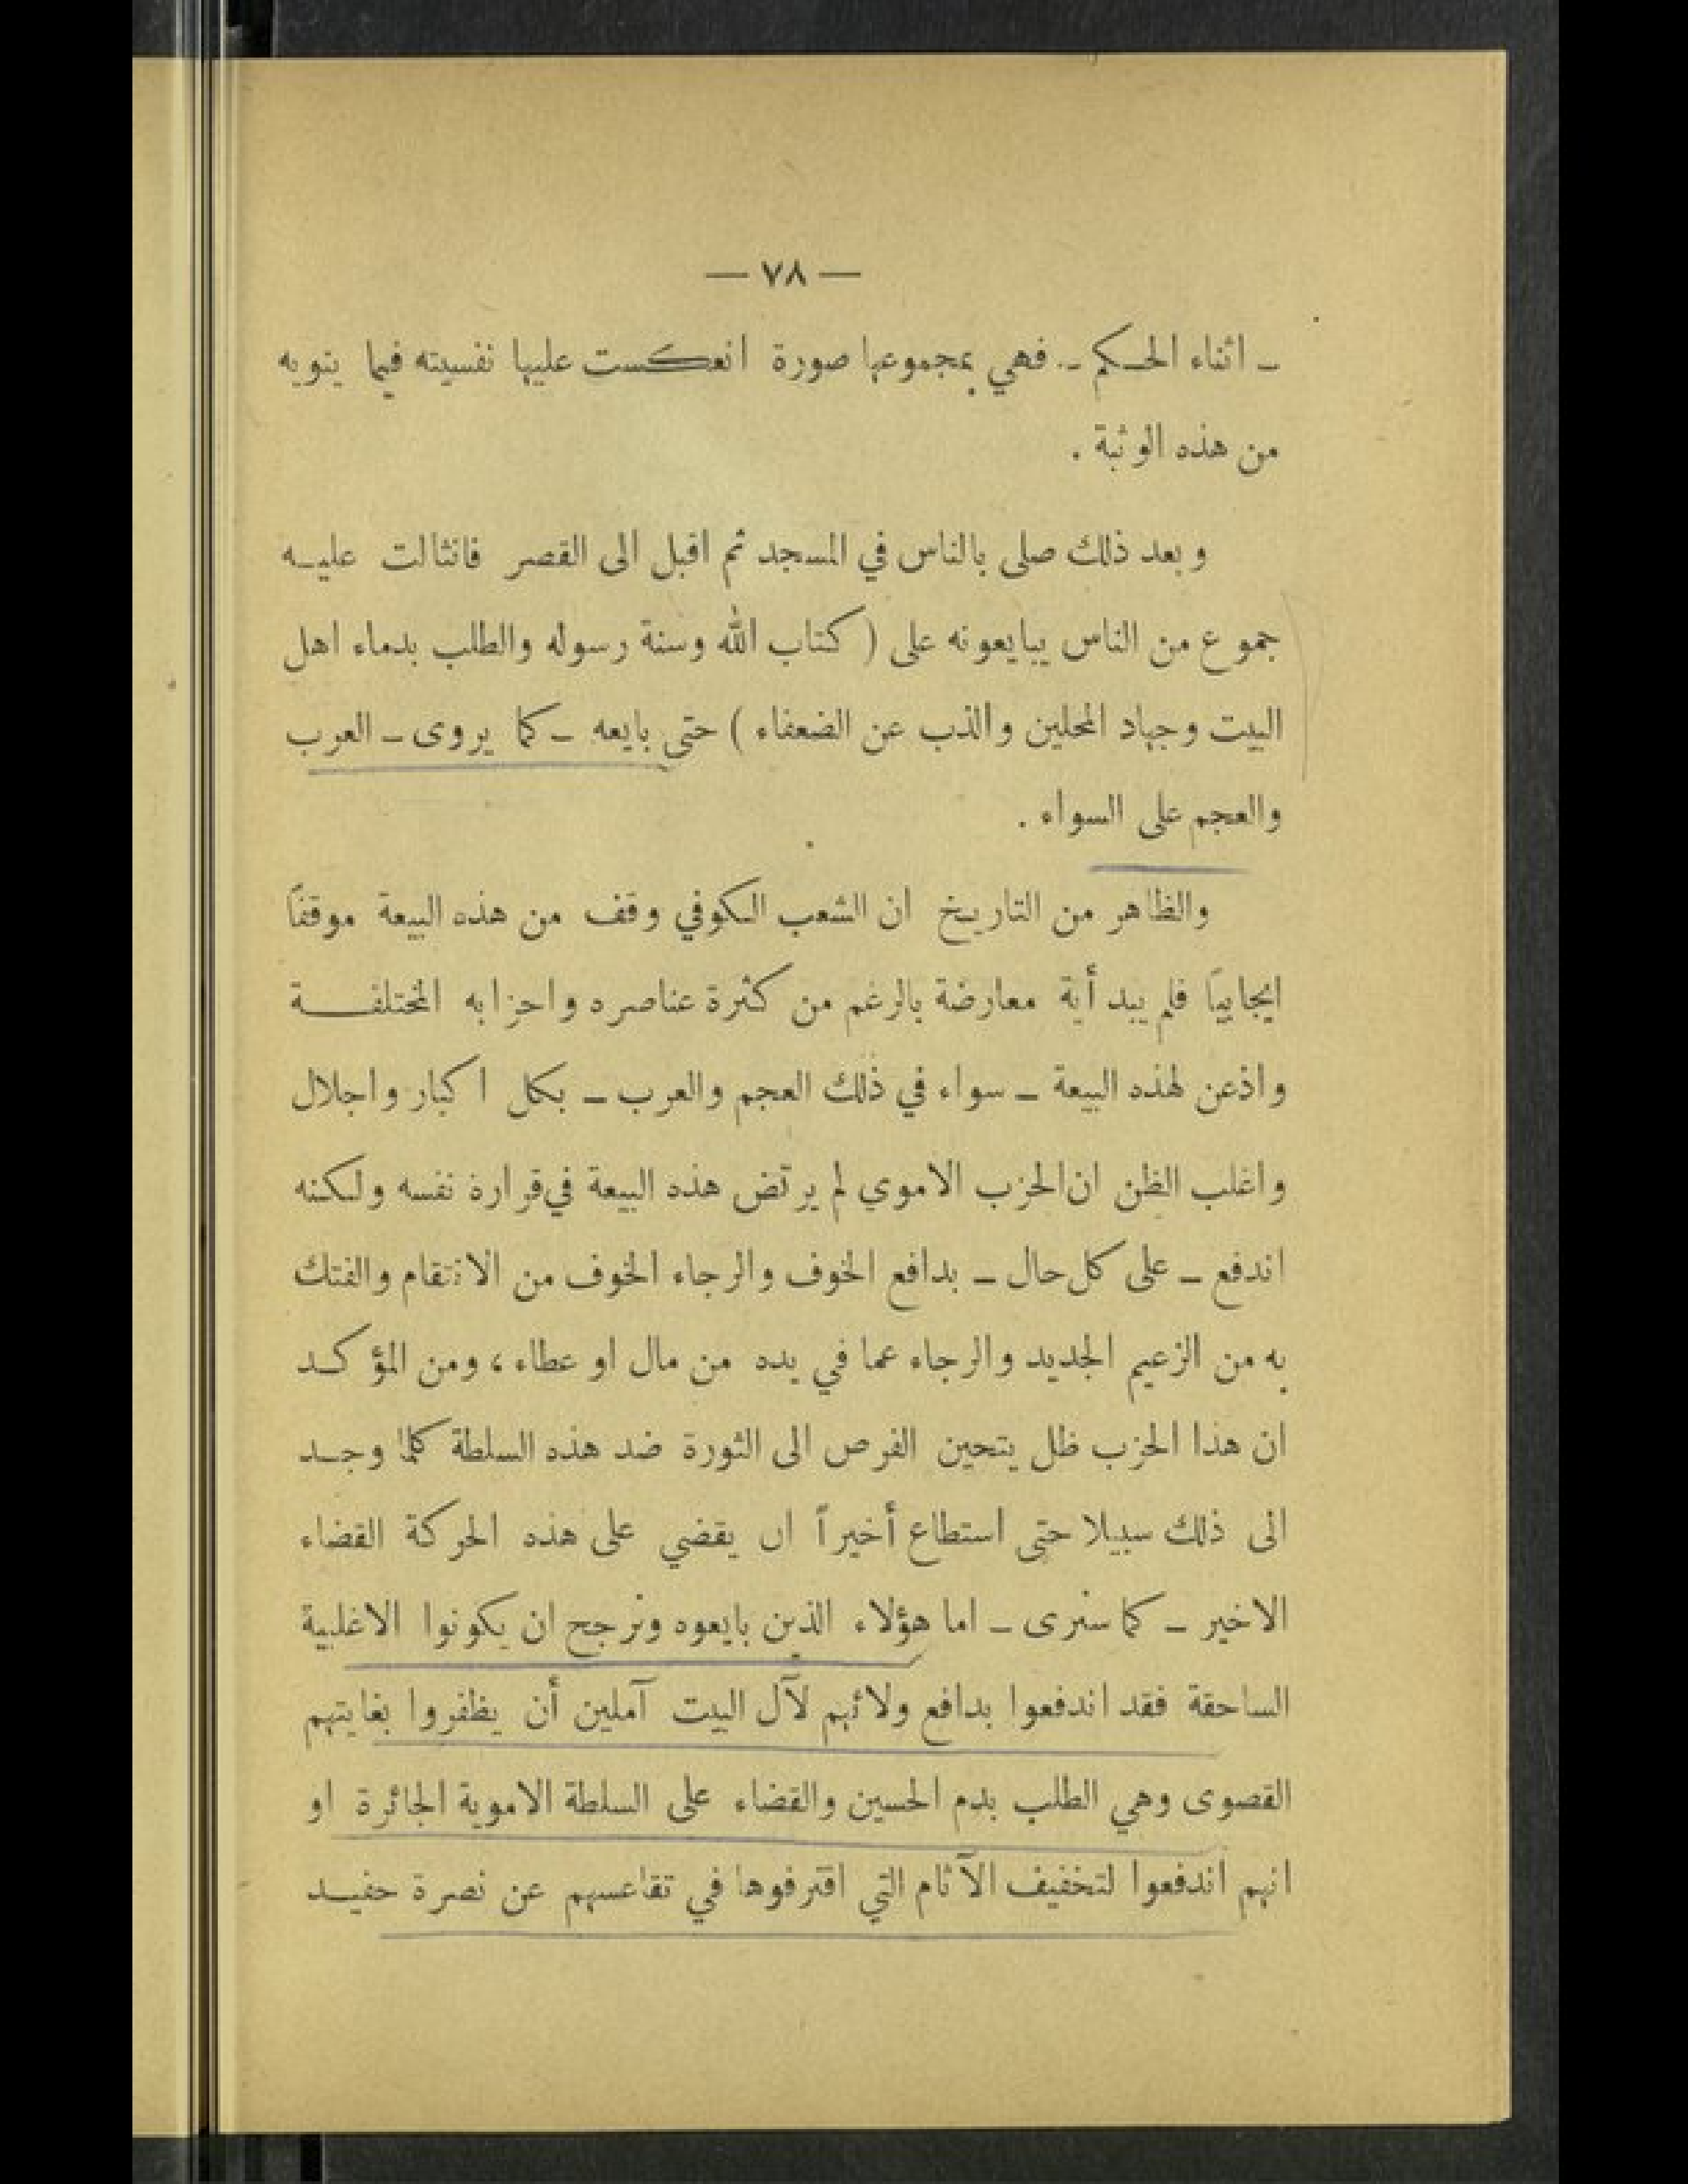 — ٧٨ —
ـ اثناء الحـكم ـ. فهي بمجموعها صورة انعكست عليها نفسيته فيما ينويه
من هذه الوثبة .
وبعد ذلك صلى بالناس في المسجد ثم اقبل الى القصر فانثالت عليـه
جموع من الناس يبايعونه على ( كتاب الله وسنة رسوله والطلب بدماء اهل
البيت وجهاد المحلين والذب عن الضعفاء ) حتى بايعه ـ كما يروى ـ العرب
والعجم على السواء .
والظاهر من التاريخ ان الشعب الكوفي وقف من هذه البيعة موقفاً
ايجابياً فلم يبد أية معارضة بالرغم من كثرة عناصره واحزابه المختلفـــة
واذعن لهذه البيعة ـ سواء في ذلك العجم والعرب ـ بكل اكبار واجلال
واغلب الظن ان الحزب الاموي لم يرتض هذه البيعة في قرارة نفسه ولكنه
اندفع ـ على كل حال ـ بدافع الخوف والرجاء الخوف من الانتقام والفتك
به من الزعيم الجديد والرجاء عما في يده من مال او عطاء ، ومن المؤكـد
ان هذا الحزب ظل يتحين الفرص الى الثورة ضد هذه السلطة كلما وجـد
الى ذلك سبيلا حتى استطاع أخيراً ان يقضي على هذه الحركة القضاء
الاخير ـ كما سنرى ـ اما هؤلاء الذين بايعوه ونرجح ان يكونوا الاغلبية
الساحقة فقد اندفعوا بدافع ولائهم لآل البيت آملين أن يظفروا بغايتهم
القصوى وهي الطلب بدم الحسين والقضاء على السلطة الاموية الجائرة او
انهم اندفعوا لتخفيف الآثام التي اقترفوها في تقاعسهم عن نصرة حفيـد